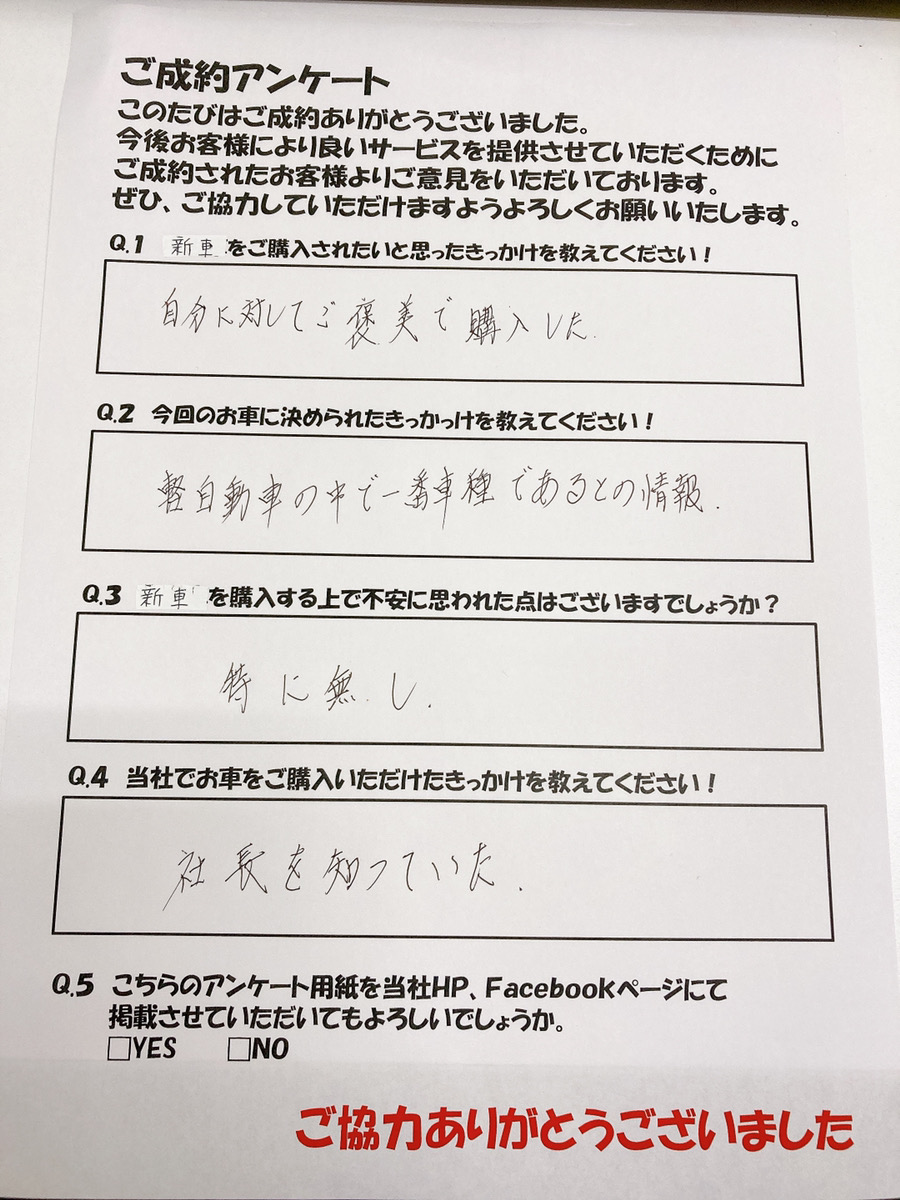 ご成約アンケート
このたびはご成約ありがとうございました。
今後お客様により良いサービスを提供させていただくために
ご成約されたお客様よりご意見をいただいております。
ぜひ、ご協力していただけますようよろしくお願いいたします。
Q.1 新車をご購入されたいと思ったきっかけを教えてください！
自分に対してご褒美で購入した.
Q.2 今回のお車に決められたきっかっけを教えてください！
軽自動車の中で一番車種であるとの情報.
Q.3 新車を購入する上で不安に思われた点はございますでしょうか？
特に無し.
Q.4 当社でお車をご購入いただけたきっかけを教えてください！
社長を知っていた.
Q.5 こちらのアンケート用紙を当社HP、Facebookページにて
掲載させていただいてもよろしいでしょうか。
□YES □NO
ご協力ありがとうございました